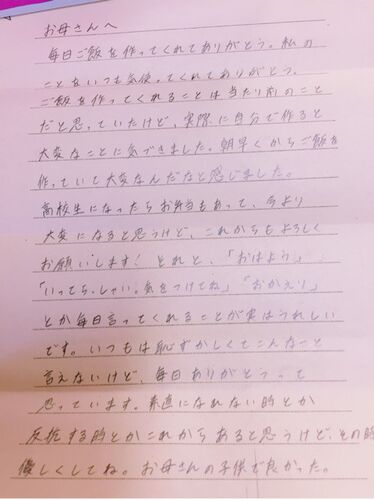 お母さんへ
毎日ご飯を作ってくれてありがとう。私の
ことをいつも気使ってくれてありがとう。
ご飯を作ってくれることは当たり前のこと
だと思っていたけど、実際に自分で作ると
大変なことに気づきました。朝早くからご飯を
作っていて大変なんだなと感じました。
高校生になったらお弁当もあって、今より
大変になると思うけど、これからもよろしく
お願いします! それと、「おはよう」
「いってらっしゃい。気をつけてね」「おかえり」
とか毎日言ってくれることが実はうれしい
です。いつもは恥ずかしくてこんなこと
言えないけど、毎日ありがとうって
思っています。素直になれない時とか
反抗する時とかこれからあると思うけど、その時
優しくしてね。お母さんの子供で良かった。